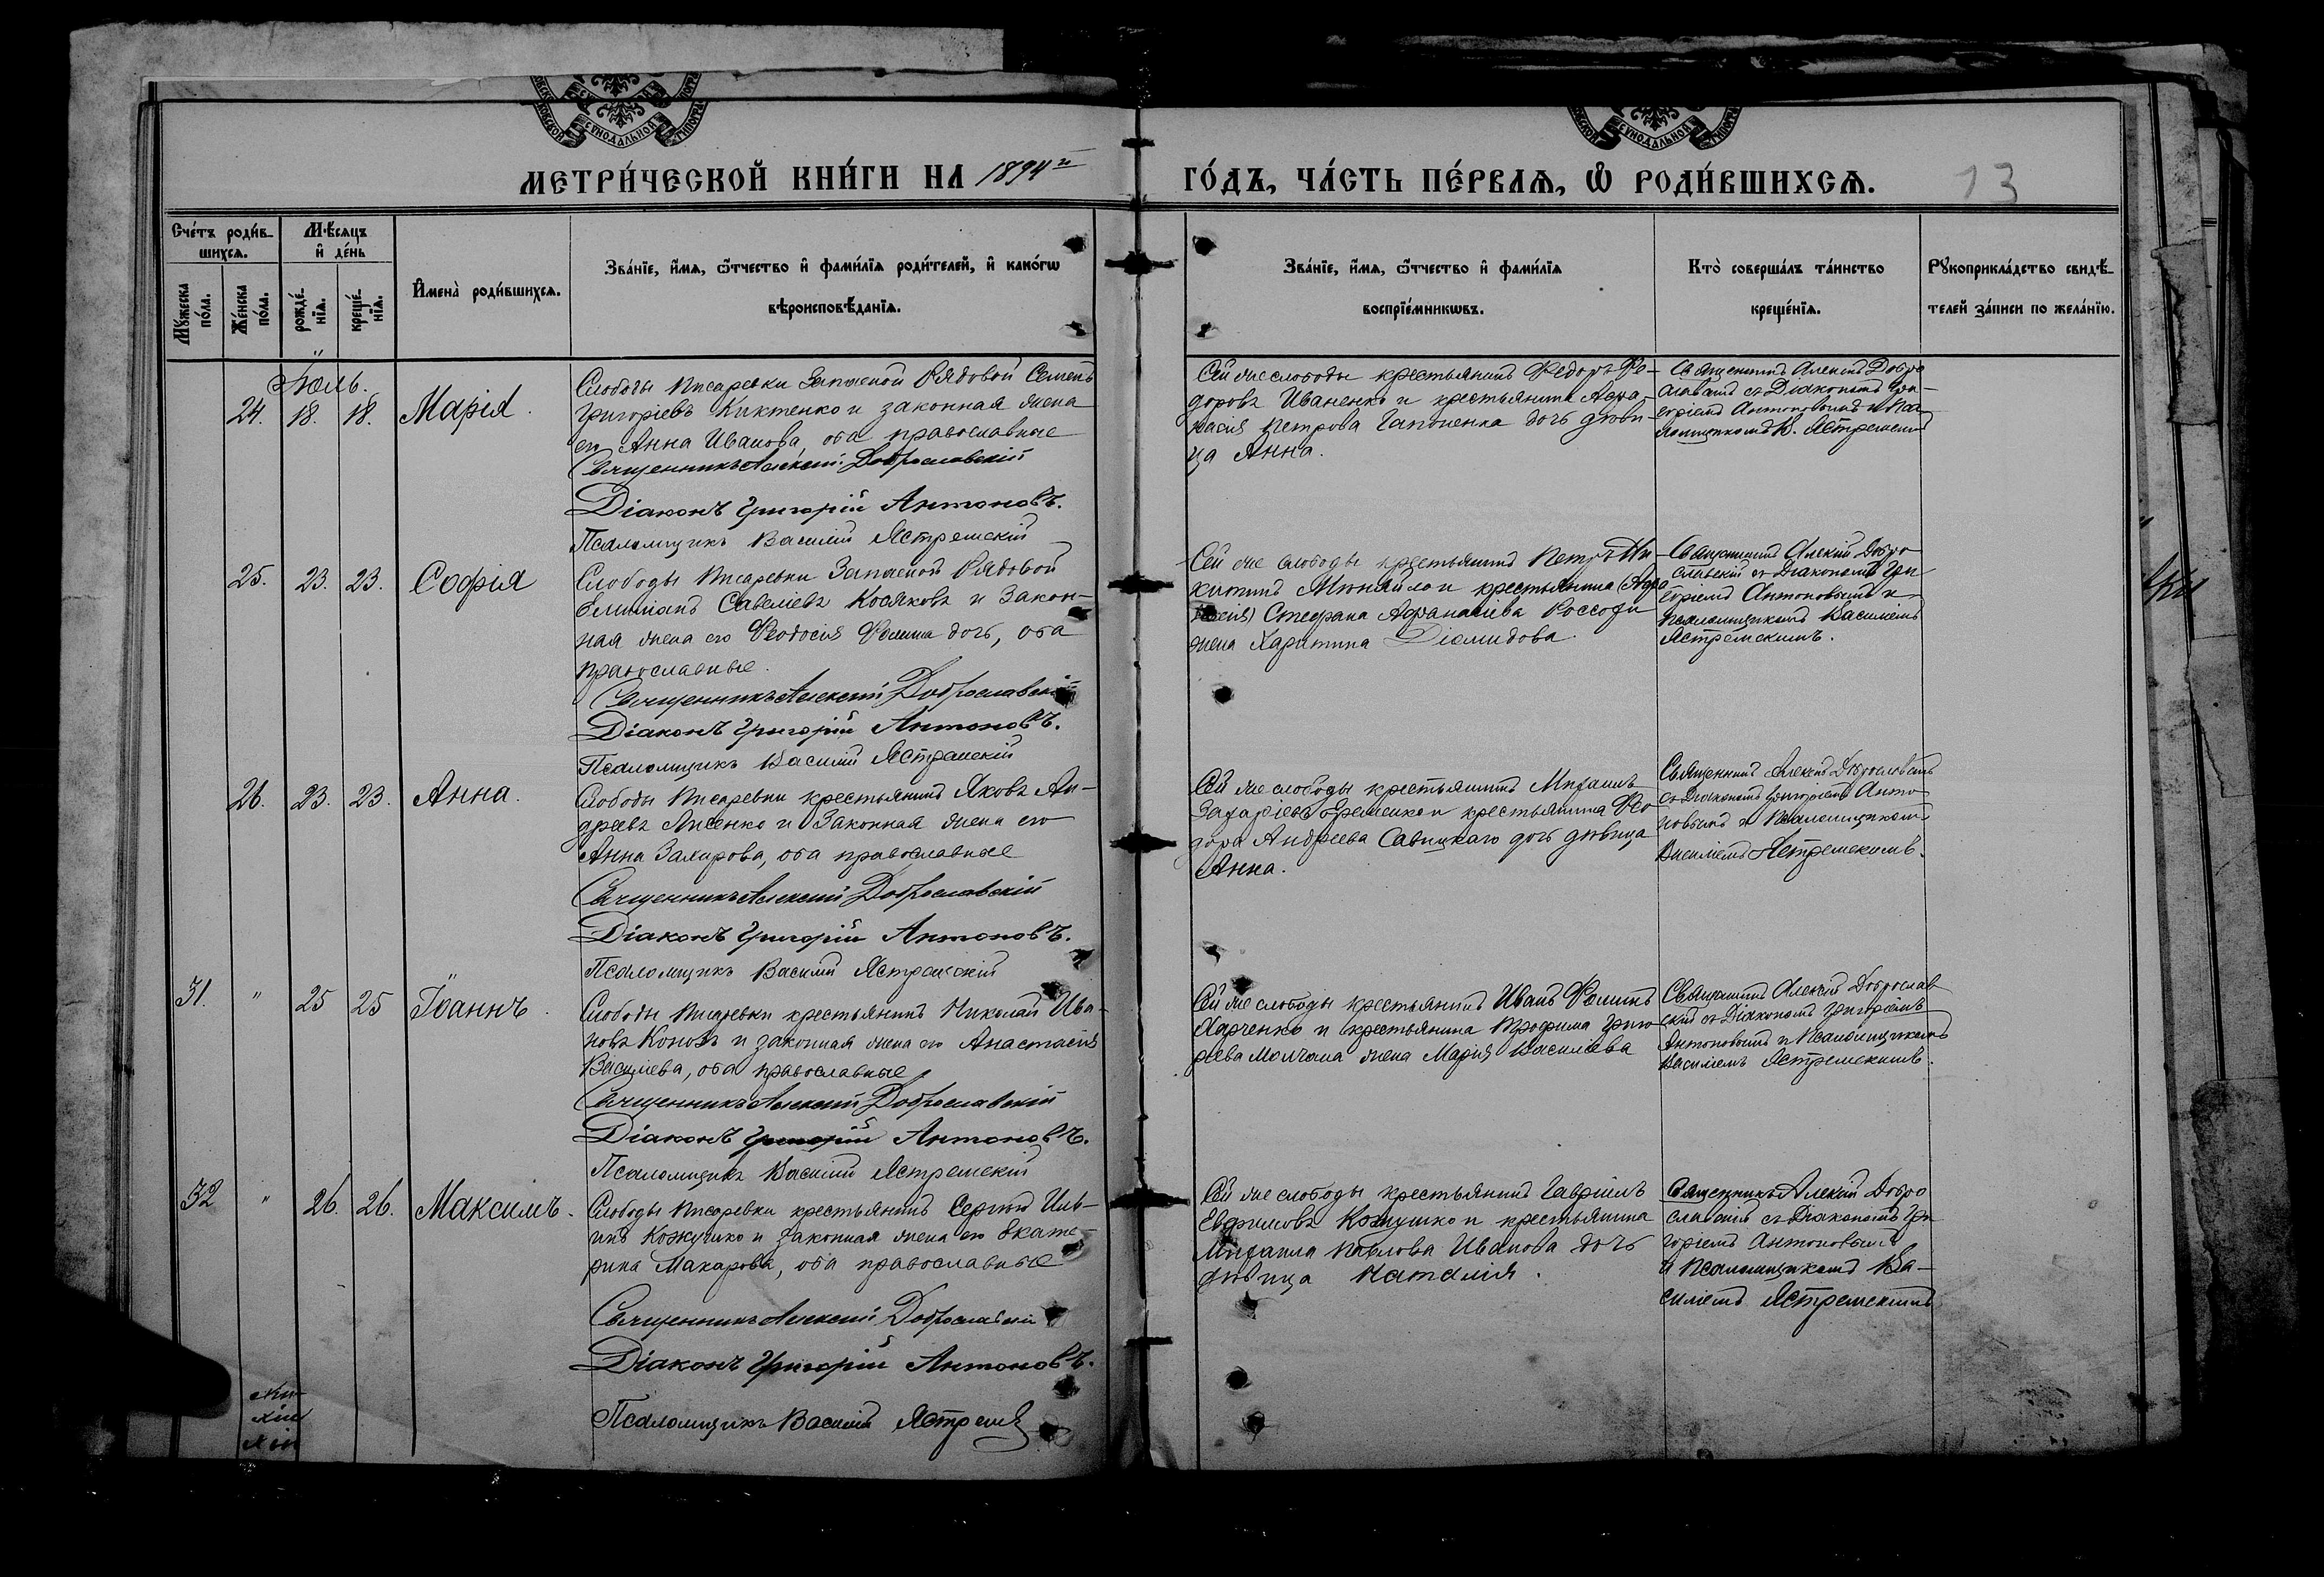 СУНОДАЛЬНОЙ
СУНОДАЛЬНОЙ
МЕТРИ́ЧЕСКОЙ КНИ́ГИ НА 1894й
ГО́ДЪ, ЧА́СТЬ ПЕ́РВАѦ, Ѽ РОДИ́ВШИХСѦ.
13
Сче́тъ роди́в-
шихсѧ.
Мѣ́сѧцъ
и҆ де́нь
Мꙋ́жеска
по́ла.
Же́нска
по́ла.
рожде́-
нїѧ.
креще́-
нїѧ.
И҆мена̀ роди́вшихсѧ.
Зва́нїе, и҆́мѧ, ѻ҆́тчество и҆ фами́лїѧ роди́телей, и҆ како́гѡ
вѣроисповѣ́данїѧ.
Зва́нїе, и҆́мѧ, ѻ҆́тчество и҆ фами́лїѧ
воспрїе́мникѡвъ.
Кто̀ соверша́лъ та́инство
креще́нїѧ.
Рꙋкоприкла́дство свидѣ́-
телей за́писи по жела́нїю.
Іюль.
24. 18. 18. Марія.
Слободы Писаревки Запасной Рядовой Семенъ
Григоріевъ Киктенко и законная жена
его Анна Иванова, оба православные
Священникъ Алексій Доброславскій
Діаконъ Григорій Антоновъ.
Псаломщикъ Василій Ястремскій
Сей же слободы крестьянинъ Федоръ Фе-
доровъ Иваненко и крестьянина Афа-
насія Петрова Гапоненка дочь дѣви-
ца Анна.
Священникъ Алексій Добро
славскій съ Діакономъ Гри-
горіемъ Антоновымъ и Пса-
ломщикомъ В. Ястремским
25. 23. 23. Софія
Слободы Писаревки Запасной Рядовой
Емиліанъ Савеліевъ Косяковъ и Закон-
ная жена его Феодосія Фомина дочь, оба
православные.
Священникъ Алексій Доброславскій
Діаконъ Григорій Антоновъ.
Псаломщикъ Василій Ястремскій
Сей же слободы крестьянинъ Петръ Ни-
китинъ и крестьянина
Стефана Афанасіева
жена Харитина Діомидова.
Священникъ Алексій Добро
славскій съ Діакономъ Гри
горіемъ Антоновымъ и
Псаломщикомъ Василіемъ
Ястремскимъ.
26. 23. 23. Анна.
Слободы Писаревки крестьянинъ Яковъ Ан-
дреевъ Лисенко и Законная жена его
Анна Захарова, оба православные
Священникъ Алексій Доброславскій
Діаконъ Григорій Антоновъ.
Псаломщикъ Василій Ястремскій
Сей же слободы крестьянинъ Михаилъ
Захаріевъ Еременко и крестьянина Фео
дора Андреева Савицкаго дочь дѣвица
Анна.
Священникъ Алексій Доброславскій
съ Діакономъ Григоріемъ Анто
новымъ и Псаломщикомъ
Василіемъ Ястремскимъ.
31. " 25 25 Іоаннъ.
Слободы Писаревки крестьянинъ Николай Ива-
новъ Коновъ и законная жена его Анастасія
Василіева, оба православные
Священникъ Алексій Доброславскій
Діаконъ Григорій Антоновъ.
Псаломщикъ Василій Ястремскій
Сей же слободы крестьянинъ Иванъ Фоминъ
Харченко и крестьянина Трофима Григо
ріева Молчана жена Марія Василіева
Священникъ Алексій Доброслав
скій съ Діакономъ Григоріемъ
Антоновымъ и Псаломщикомъ
Василіемъ Ястремскимъ.
32 " 26. 26. Максимъ.
Слободы Писаревки крестьянинъ Сергій Иль-
инъ Кожушко и законная жена его Екате-
рина Макарова, оба православные
Священникъ Алексій Доброславскій
Діаконъ Григорій Антоновъ.
Псаломщикъ Василій Ястремск
Сей же слободы крестьянинъ Гавріилъ
Евфимовъ Кожушко и крестьянина
Михаила Павлова Иванова дочь
дѣвица Наталія.
Священникъ Алексій Добро
славскій съ Діакономъ Гри
горіемъ Антоновымъ
и Псаломщикомъ Ва-
силіемъ Ястремскимъ